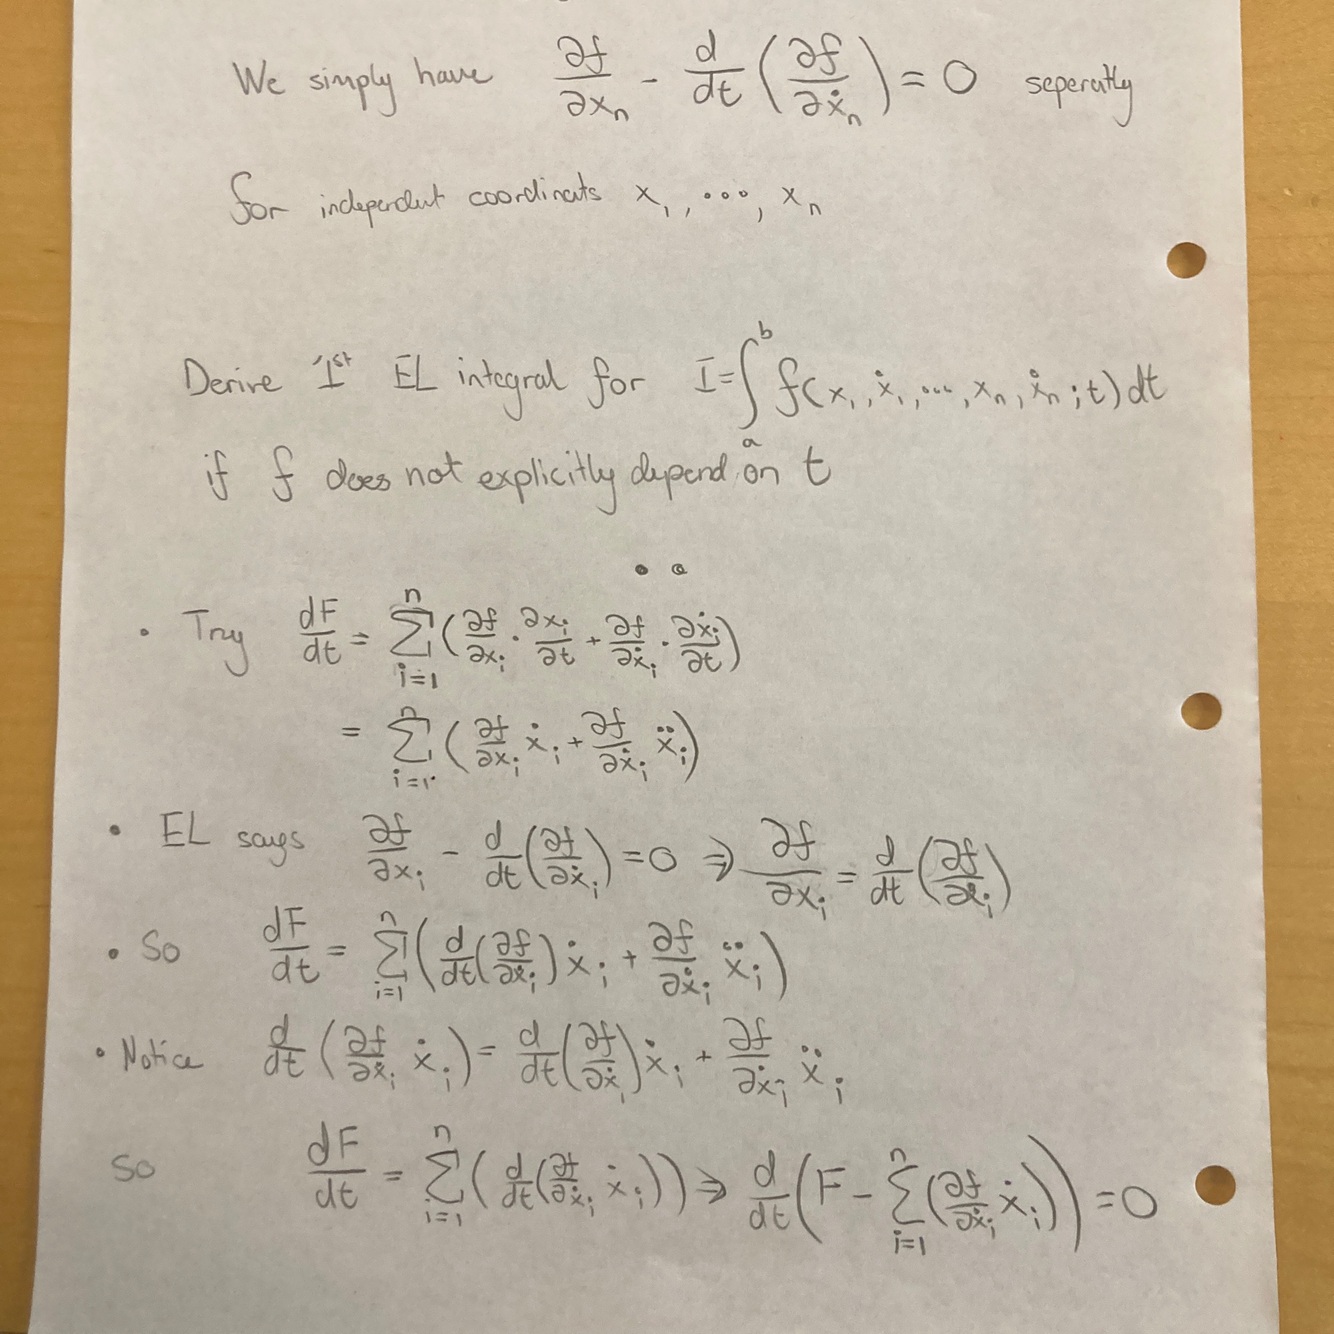 We simply have ∂f/∂xₙ - d/dt (∂f/∂ẋₙ) = 0 seperatly
for independent coordinats x₁, ..., xₙ
Derive 1st EL integral for I = ∫ₐᵇ f(x₁, ẋ₁, ..., xₙ, ẋₙ; t) dt
if f does not explicitly depend on t
• Try dF/dt = Σᵢ₌₁ⁿ (∂f/∂xᵢ · ∂xᵢ/∂t + ∂f/∂ẋᵢ · ∂ẋᵢ/∂t)
= Σᵢ₌₁ⁿ (∂f/∂xᵢ ẋᵢ + ∂f/∂ẋᵢ ẍᵢ)
• EL says ∂f/∂xᵢ - d/dt (∂f/∂ẋᵢ) = 0 ⇒ ∂f/∂xᵢ = d/dt (∂f/∂ẋᵢ)
• So dF/dt = Σᵢ₌₁ⁿ (d/dt (∂f/∂ẋᵢ) ẋᵢ + ∂f/∂ẋᵢ ẍᵢ)
• Notice d/dt (∂f/∂ẋᵢ ẋᵢ) = d/dt (∂f/∂ẋᵢ) ẋᵢ + ∂f/∂ẋᵢ ẍᵢ
So dF/dt = Σᵢ₌₁ⁿ (d/dt (∂f/∂ẋᵢ ẋᵢ)) ⇒ d/dt (F - Σᵢ₌₁ⁿ (∂f/∂ẋᵢ ẋᵢ)) = 0